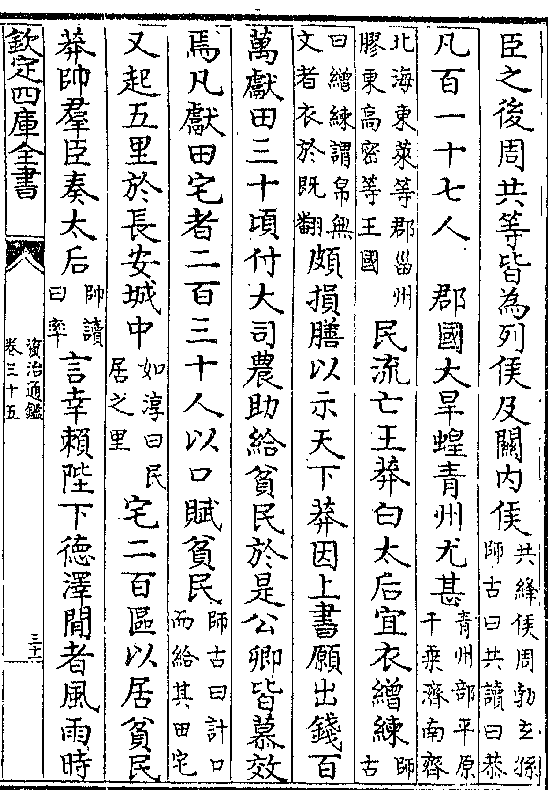 臣之後周共等皆為列侯及關内侯共絳侯周勃玄孫師古曰共讀曰恭
凡百一十七人　郡國大旱蝗青州尤甚青州部平原千乗濟南齊
北海東萊等郡甾川膠東高密等王國民流亡王莽白太后宜衣繒練師古
曰繒練謂帛無文者衣於既翻頗損膳以示天下莽因上書願出錢百
萬獻田三十頃付大司農助給貧民於是公卿皆慕效
焉凡獻田宅者二百三十人以口賦貧民師古曰計口而給其田宅
又起五里於長安城中如淳曰民居之里宅二百區以居貧民
莽帥羣臣奏太后帥讀曰率言幸賴陛下德澤間者風雨時
欽定四庫全書
資治通鑑
卷三十五
三十一